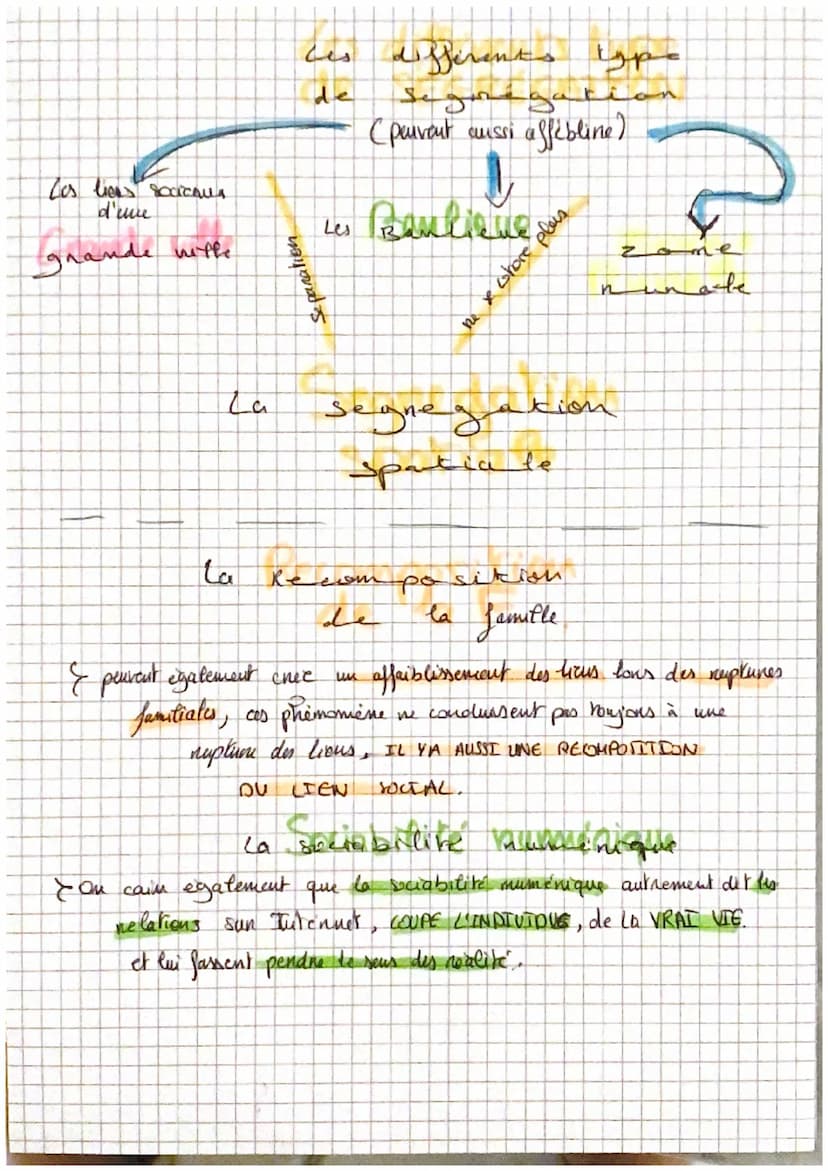 Les différents type
de segrégation
(peuvent aussi affèbline)
Les liens sociaux
d'une
grande ville
Les Banlieue
zone
rurale
séparation
ne se côtoie plus
La segregation
spatiale
La Recomposition
de la famille
peuvent également créé un affaiblissement des liens lors des ruptures
familiales, ces phénomène ne conduisent pas toujours à une
rupture des liens, IL YA AUSSI UNE RECOMPOSITION
DU LIEN SOCIAL.
La Sociabilité numérique
On également que la sociabilité numérique autrement dit les
relations sur Internet, COUPE L'INDIVIDUE, de la VRAI VIE.
et lui fassent perdre le sens des réalité.